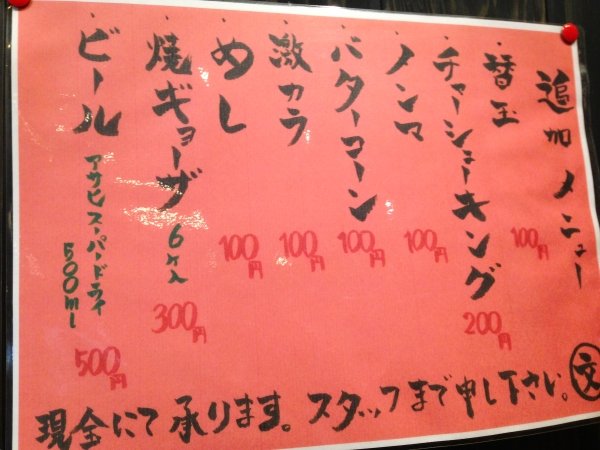 追加メニュー
・替玉 100円
・チャーシューキング 200円
・ノンマ 100円
・バターコーン 100円
・激カラ 100円
・めし 100円
・焼ギョーザ 6ケ入 300円
・ビール アサヒスーパードライ 500ml 500円
現金にて承ります。スタッフまで申し下さい。
文